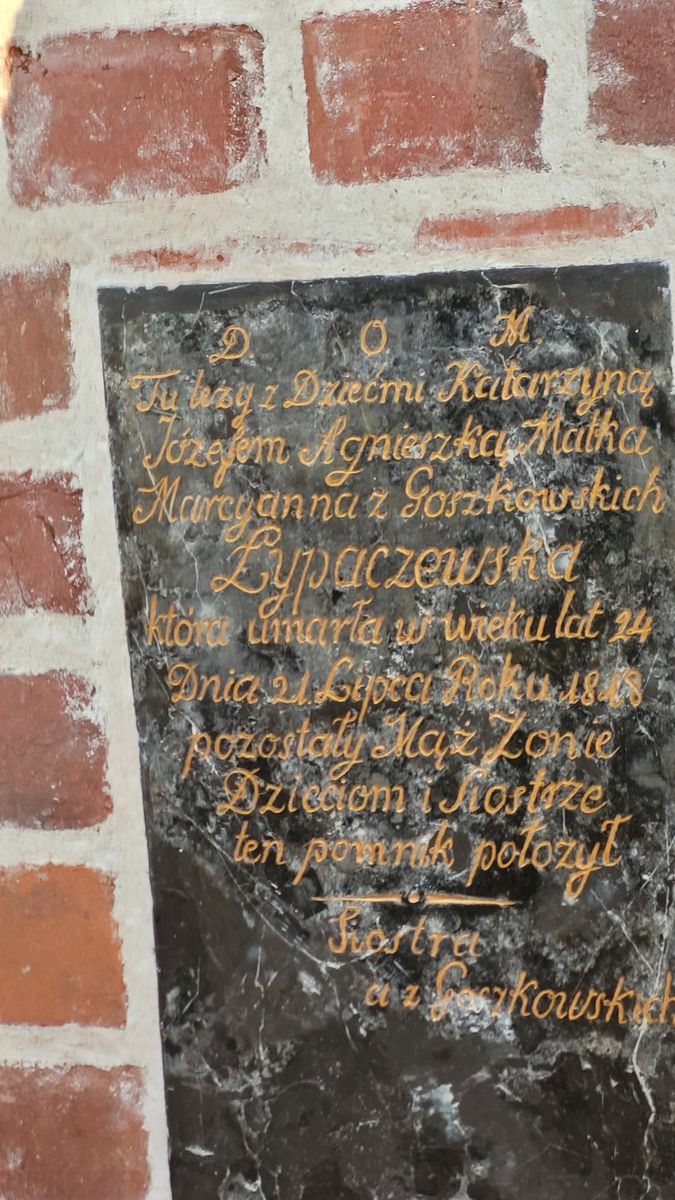 D. O M.
Tu leży z Dziećmi Katarzyną
Józefem Agnieszką Matka
Marcyanna z Goszkowskich
Łypaczewska
która umarła w wieku lat 24
Dnia 21. Lipca Roku 1818
pozostały Mąż Żonie
Dzieciom i Siostrze
ten pomnik położył
Siostra
a z Goszkowskich